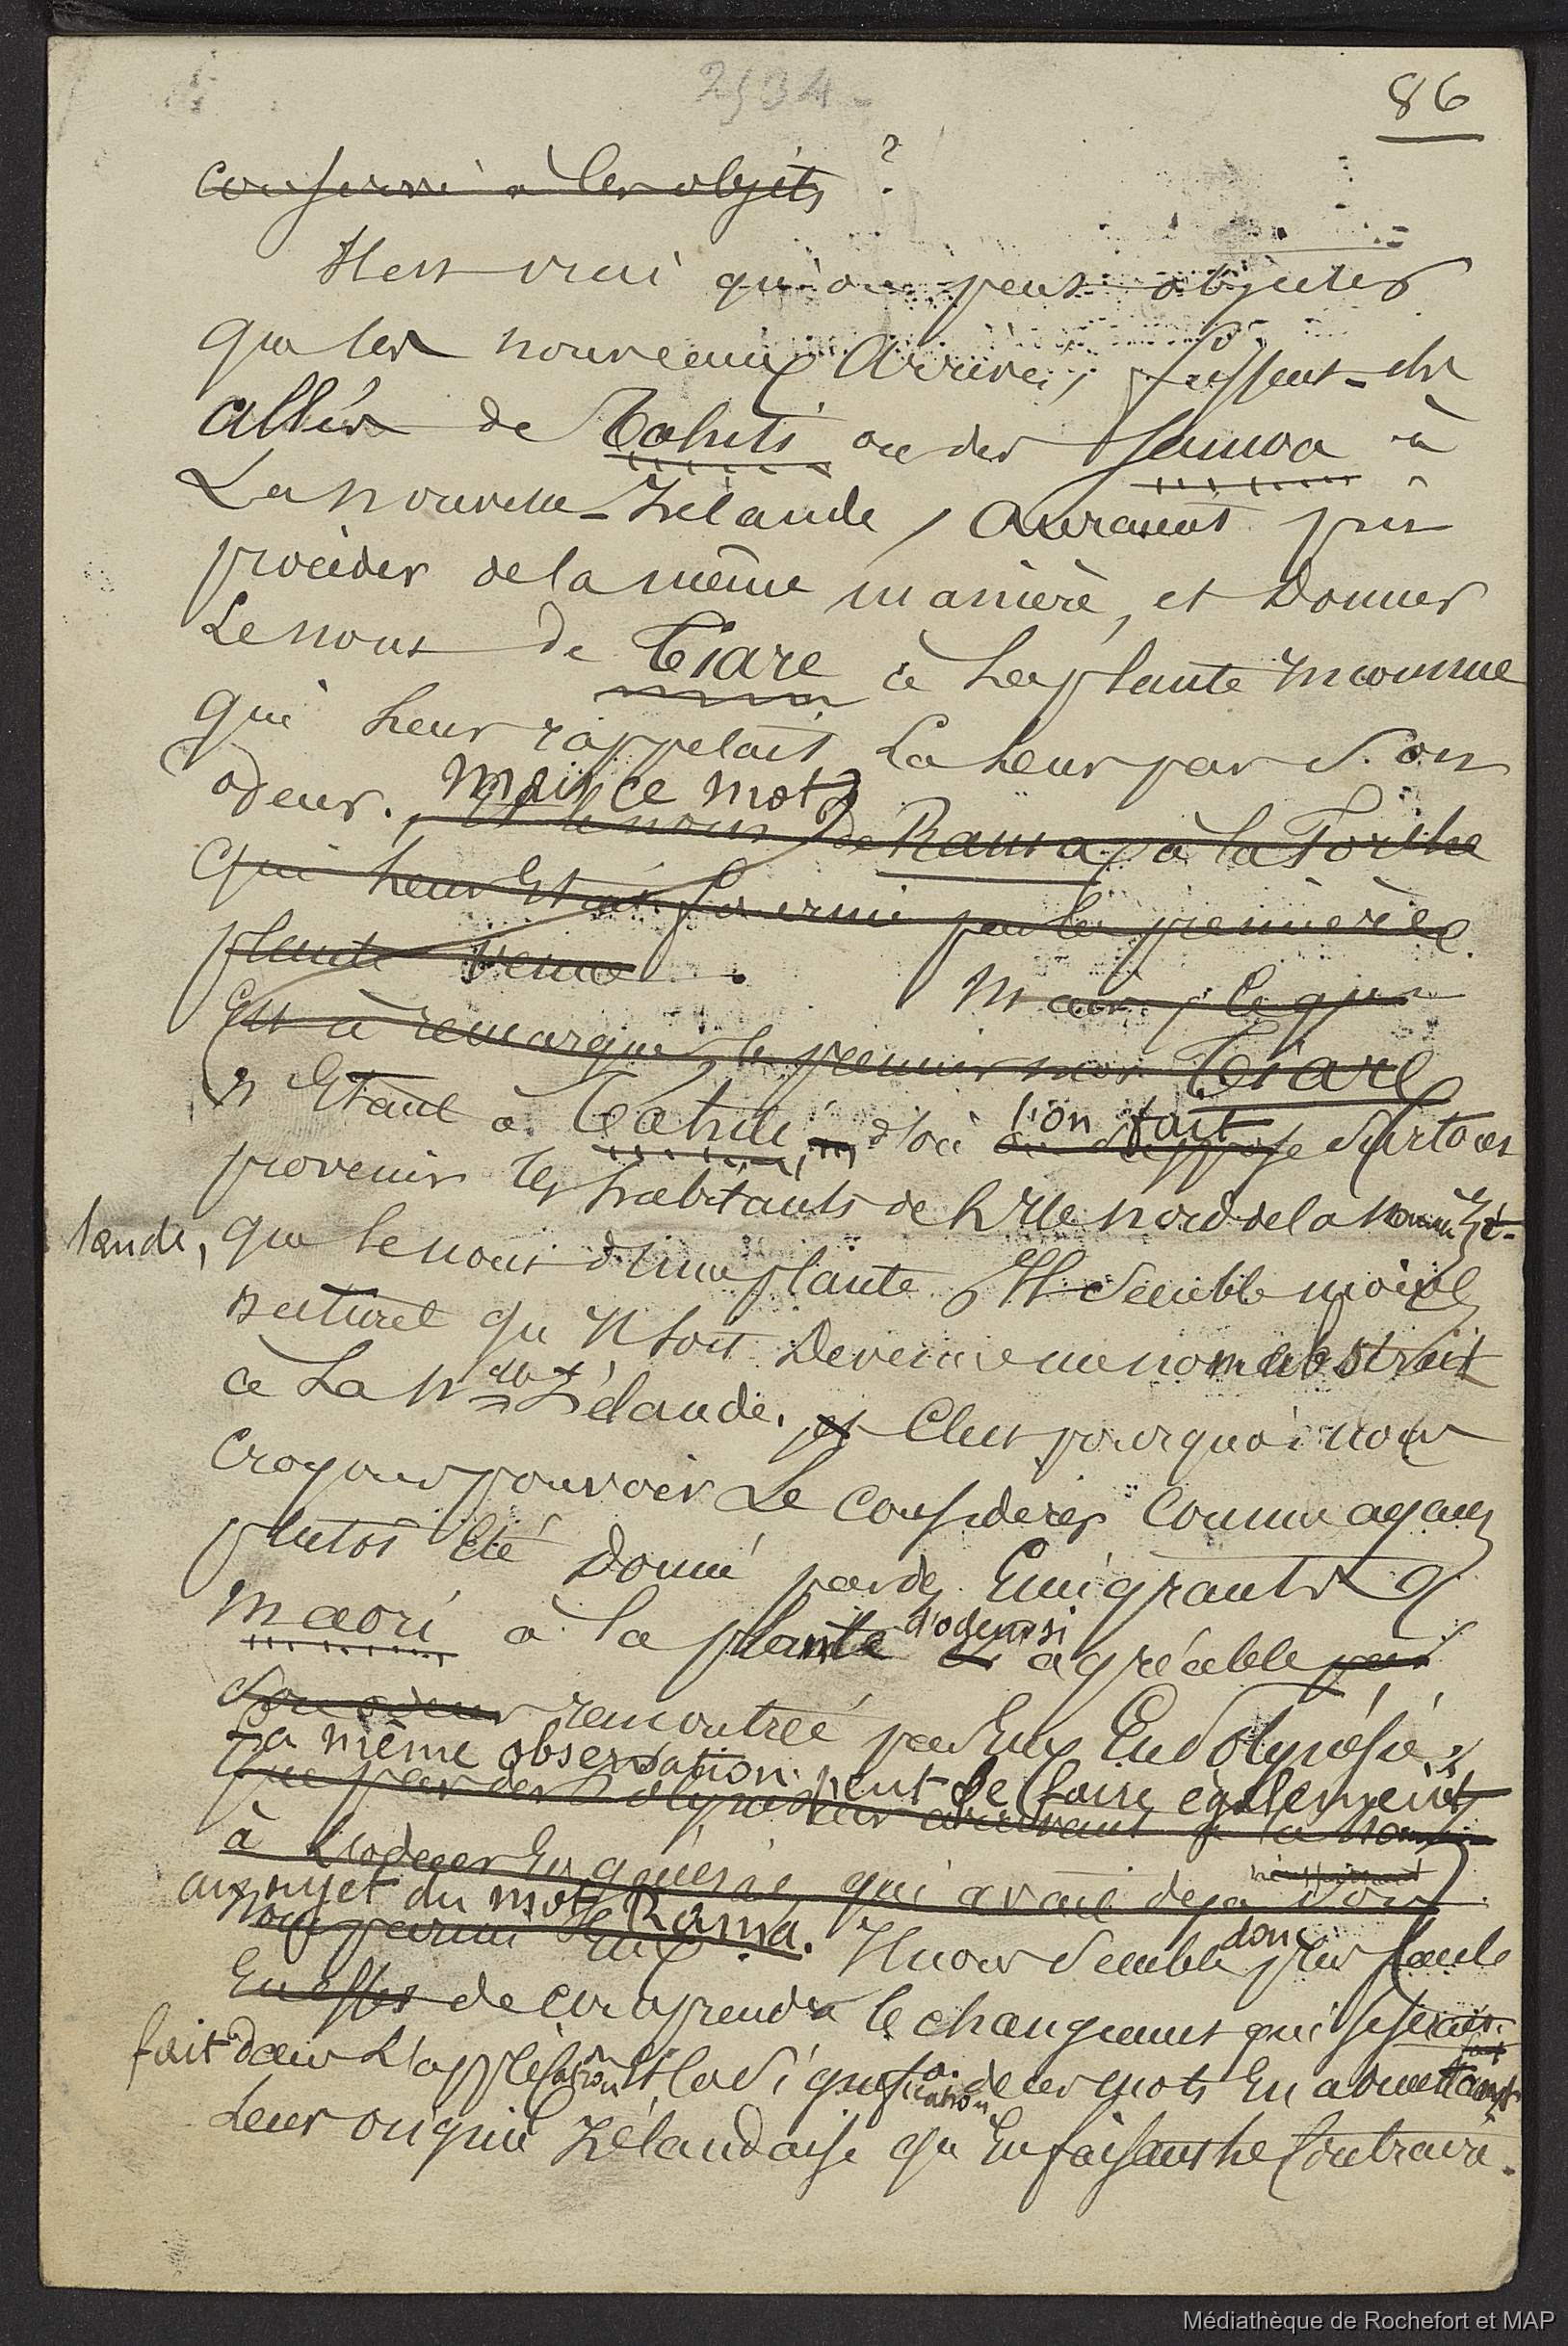 2504
86
conservé à les objets ?
Il est vrai qu'on peut objecter
que les nouveaux arrivés, fussent-ils
allés de Tahiti ou des Samoa à
La nouvelle-Zélande, auraient pu
procéder de la même manière, et Donner
Le nom de Tiare à la plante inconnue
qui leur rappelait La leur par son
odeur. Mais ce mot
, et le nom de Rama, à la Torche
qui leur était fournie par la première
plante venue.
Mais, ce qui
est à remarquer, le premier mot Tiare
n'étant à Tahiti, d'où l'on fait surtout
provenir les habitants de l'Ile nord de la Nouv. Zé-
lande, que le nom d'une plante Il semble moins
naturel qu'il soit Devenu un nom abstrait
à La Nlle Zélande. et C'est pourquoi nous
croyons pouvoir Le considérer comme ayant
plutôt été Donné par des Emigrants
maori à la plante d'odeur si agréable par
son odeur rencontrée par Eux En Polynésie,
La même observation peut se faire également
que par des Polynésiens arrivant à la Nou
à
qui avait déjà son
au sujet du mot Rama.
nom parmi eux. Il nous semble donc plus facile
En effet de comprendre le changement qui se serait
fait dans L'application Et la signification de ces mots En admettant
Leur origine Zélandaise qu'En faisant le Contraire.
Médiathèque de Rochefort et MAP